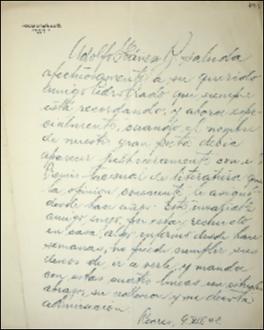 Adolfo Ibáñez B. saluda
afectuosamente a su querido
amigo Pedro Prado que siempre
está recordando, y ahora espe-
cialmente, cuando el nombre
de nuestro gran poeta debía
aparecer justicieramente con el
Premio Nacional de Literatura que
la opinión le asignó
desde hace años. Este invariable
amigo suyo, por estar recluido
en casa algo enfermo desde hace
semanas, no puede cumplir sus
deseos de ir a verle, y manda
con estas cuatro líneas un estrecho
abrazo, su y me devota
admiración.